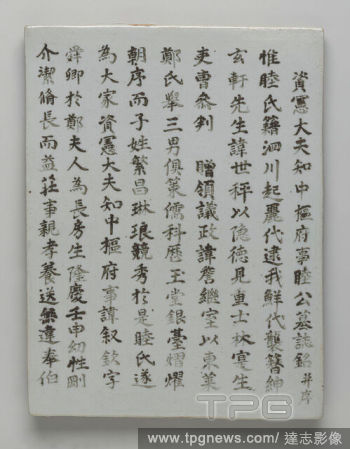 資憲大夫知中樞府事睦公墓誌銘 幷序
惟睦氏籍泗川起麗代逮我鮮代襲簪紳
玄軒先生諱世秤以隱德見重士林寔生
吏曹參判 贈領議政諱詹繼室以東萊
鄭氏擧三男俱策儒科歷玉堂銀臺熠燿
朝序而子姓繁昌琳琅競秀於是睦氏遂
為大家資憲大夫知中樞府事諱叙欽字
舜卿於鄭夫人為長房生隆慶壬申幼性剛
介潔脩長而益莊事親孝養送無違奉伯
TPG
www.tpgnews.com / 達志影像